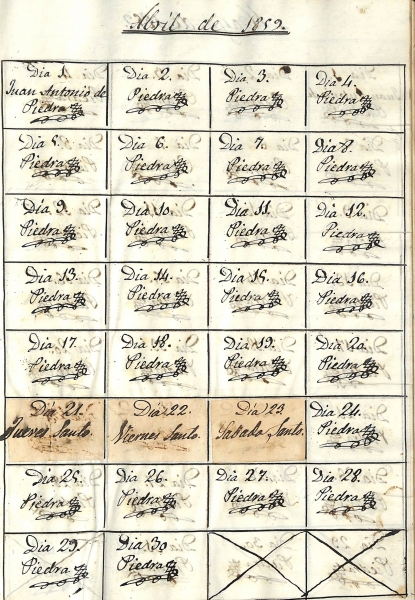 Abril de 1859.
Dia 1.
Juan Antonio de
Piedra
Dia 2.
Piedra
Dia 3.
Piedra
Dia 4.
Piedra
Dia 5.
Piedra
Dia 6.
Piedra
Dia 7.
Piedra
Dia 8.
Piedra
Dia 9.
Piedra
Dia 10.
Piedra
Dia 11.
Piedra
Dia 12.
Piedra
Dia 13.
Piedra
Dia 14.
Piedra
Dia 15.
Piedra
Dia 16.
Piedra
Dia 17.
Piedra
Dia 18.
Piedra
Dia 19.
Piedra
Dia 20.
Piedra
Dia 21.
Jueves Santo.
Dia 22.
Viernes Santo.
Dia 23.
Sabado Santo.
Dia 24.
Piedra
Dia 25.
Piedra
Dia 26.
Piedra
Dia 27.
Piedra
Dia 28.
Piedra
Dia 29.
Piedra
Dia 30
Piedra